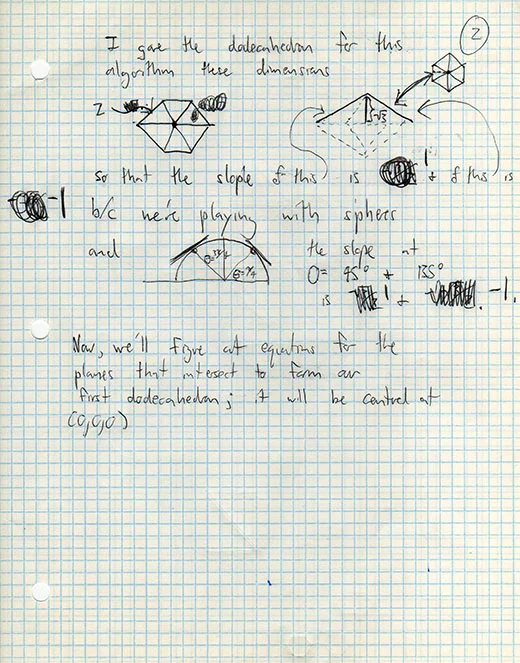 2
I gave the dodecahedron for this
algorithm these dimensions
2
√3
so that the slope of this is 1 & of this is
-1 b/c we're playing with spheres
and
θ=π/4
the slope at
θ= 45° & 135°
is 1 & -1.
Now, we'll figure out equations for the
planes that intersect to form our
first dodecahedron; it will be centred at
(0,0,0)